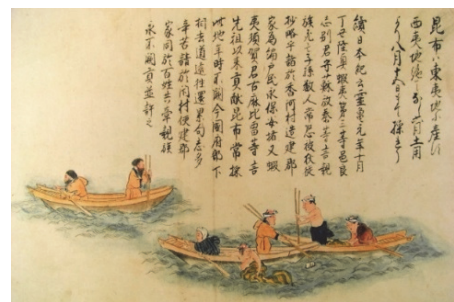 昆布ハ東夷地に産す
西夷地絶てなし六月土用
より八月十五日まて採なり
續日本紀云靈亀元年十月
丁丑陸奥蝦夷第三等邑良
志別君宇蘇弥奈等言親
族死亡子孫數人常恐被狄徒
抄略乎請於香河村造建郡
家為編戸民永保安堵又蝦
夷須賀君古麻比留等言
先祖以来貢献昆布常採
此地年時不闕今國府郭下
相去道遠往還累旬甚多
辛苦請於閇村便建郡
家同於百姓共率親族
永不闕貢並許之